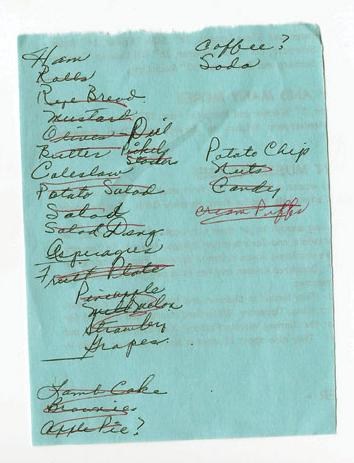 Ham
Rolls
Rye Bread
Mustard
Olives - Dill
Butter Pickles
Coleslaw
Potato Salad
Salad
Salad Dsng
Asparagus
Fruit Plate
Pineapple
Melon
Strawby
Grapes
Lamb Cake
Brownies
Apple Pie?
Coffee?
Soda
Potato Chip
Nuts
Candy
Cream Puffs